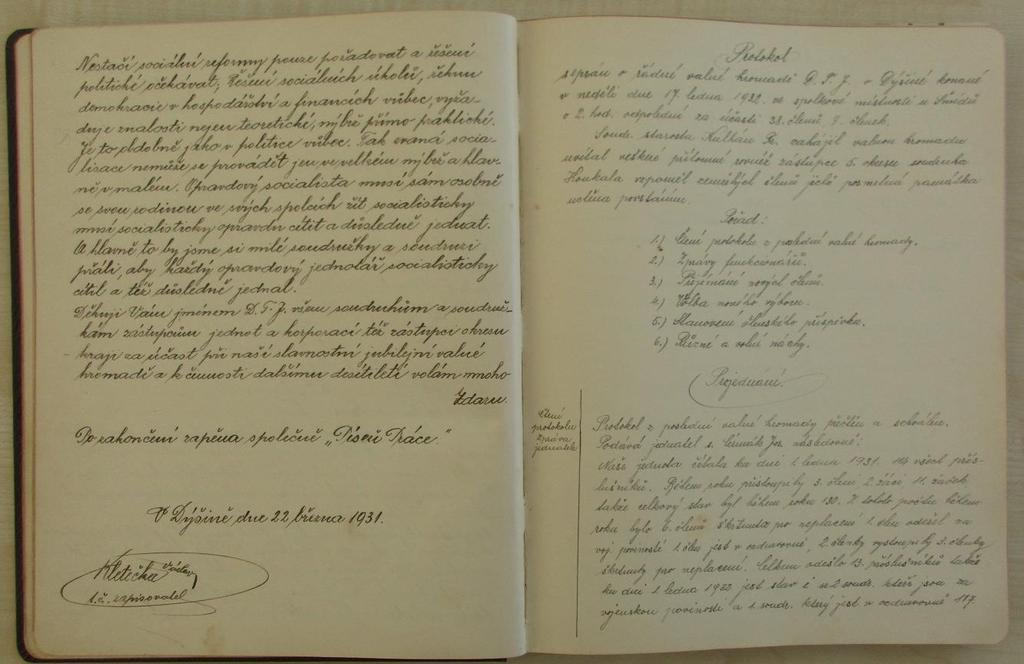 Nestačí sociální reformy pouze pořadovat a řešení
politické očekávat, Řešení sociálních úkolů, řehnu
demokracie v hospodářství a financích vůbec, vyža-
duje znalosti nejen teoretické, nýbrž přímo praktické.
Je to obdobně jako v politice vůbec. Tak zvaná socia-
lisace nemůže se provádět jen ve velkém nýbrž a hlav-
ně v malém. Opravdový socialista musí sám osobně
se svou rodinou ve svých spolcích žít socialisticky
musí socialisticky opravdu cítit a důsledně jednat.
A hlavně to by jsme si milé soudružky a soudruzi
přáli, aby každý opravdový jednotář socialisticky
cítil a též důsledně jednal.
Děkuji Vám jménem D.T.J. všem soudruhům a soudruž-
kám zástupcům jednot a korporací též zástupci okresu
kraji za účast při naší slavnostní jubilejní valné
hromadě a k činnosti dalšímu desítiletí volám mnoho
Zdaru.
Po zakončení zapěna společně „Píseň Práce."
V Dýšině dne 22. března 1931.
Kletečka Václav
t.č. zapisovatel
Protokol
sepsán o řádné valné hromadě D.T.J. v Dýšině konané
v neděli dne 17. ledna 1932. ve spolkové místnosti u Šmídů
o 2. hod. odpolední za účasti 38. členů 9. členek.
Soudr. starosta Kulhán zahájil valnou hromadu
uvítal veškeré přítomné rovněž zástupce 5. okresu soudruha
Houkala vzpoměl zemřelých členů jejichž památka
uctěna povstáním.
Pořad:
1.) Čtení protokolu z poslední valné hromady.
2.) Zprávy funkcionářů.
3.) Přijímání nových členů.
4.) Volba nového výboru.
5.) Stanovení členského příspěvku.
6.) Různé a volné návrhy.
Projednání.
Čtení
protokolu
Zpráva
jednatele
Protokol z poslední valné hromady přečten a schválen.
Podává jednatel s. Čermák Jos. následovně:
Naše jednota čítala ku dni 1. lednu 1931. 114 všech přís-
lušníků. Během roku přistoupily 3. členi 2. žáci, 11. žaček
takže celkový stav byl během roku 130. Z tohoto počtu během
roku bylo 6. členů škrtnuto pro neplacení 1. člen odešel na
voj. povinost 1. člen jest v 2. členky vystoupily 3. členky
škrtnuty pro neplacení. Celkem odešlo 13. příslušníků takže
ku dni 1. ledna 1932 jest stav i s 2 soudr. kteří jsou za
vojenskou povinosti a 1. soudr. který jest v 117.